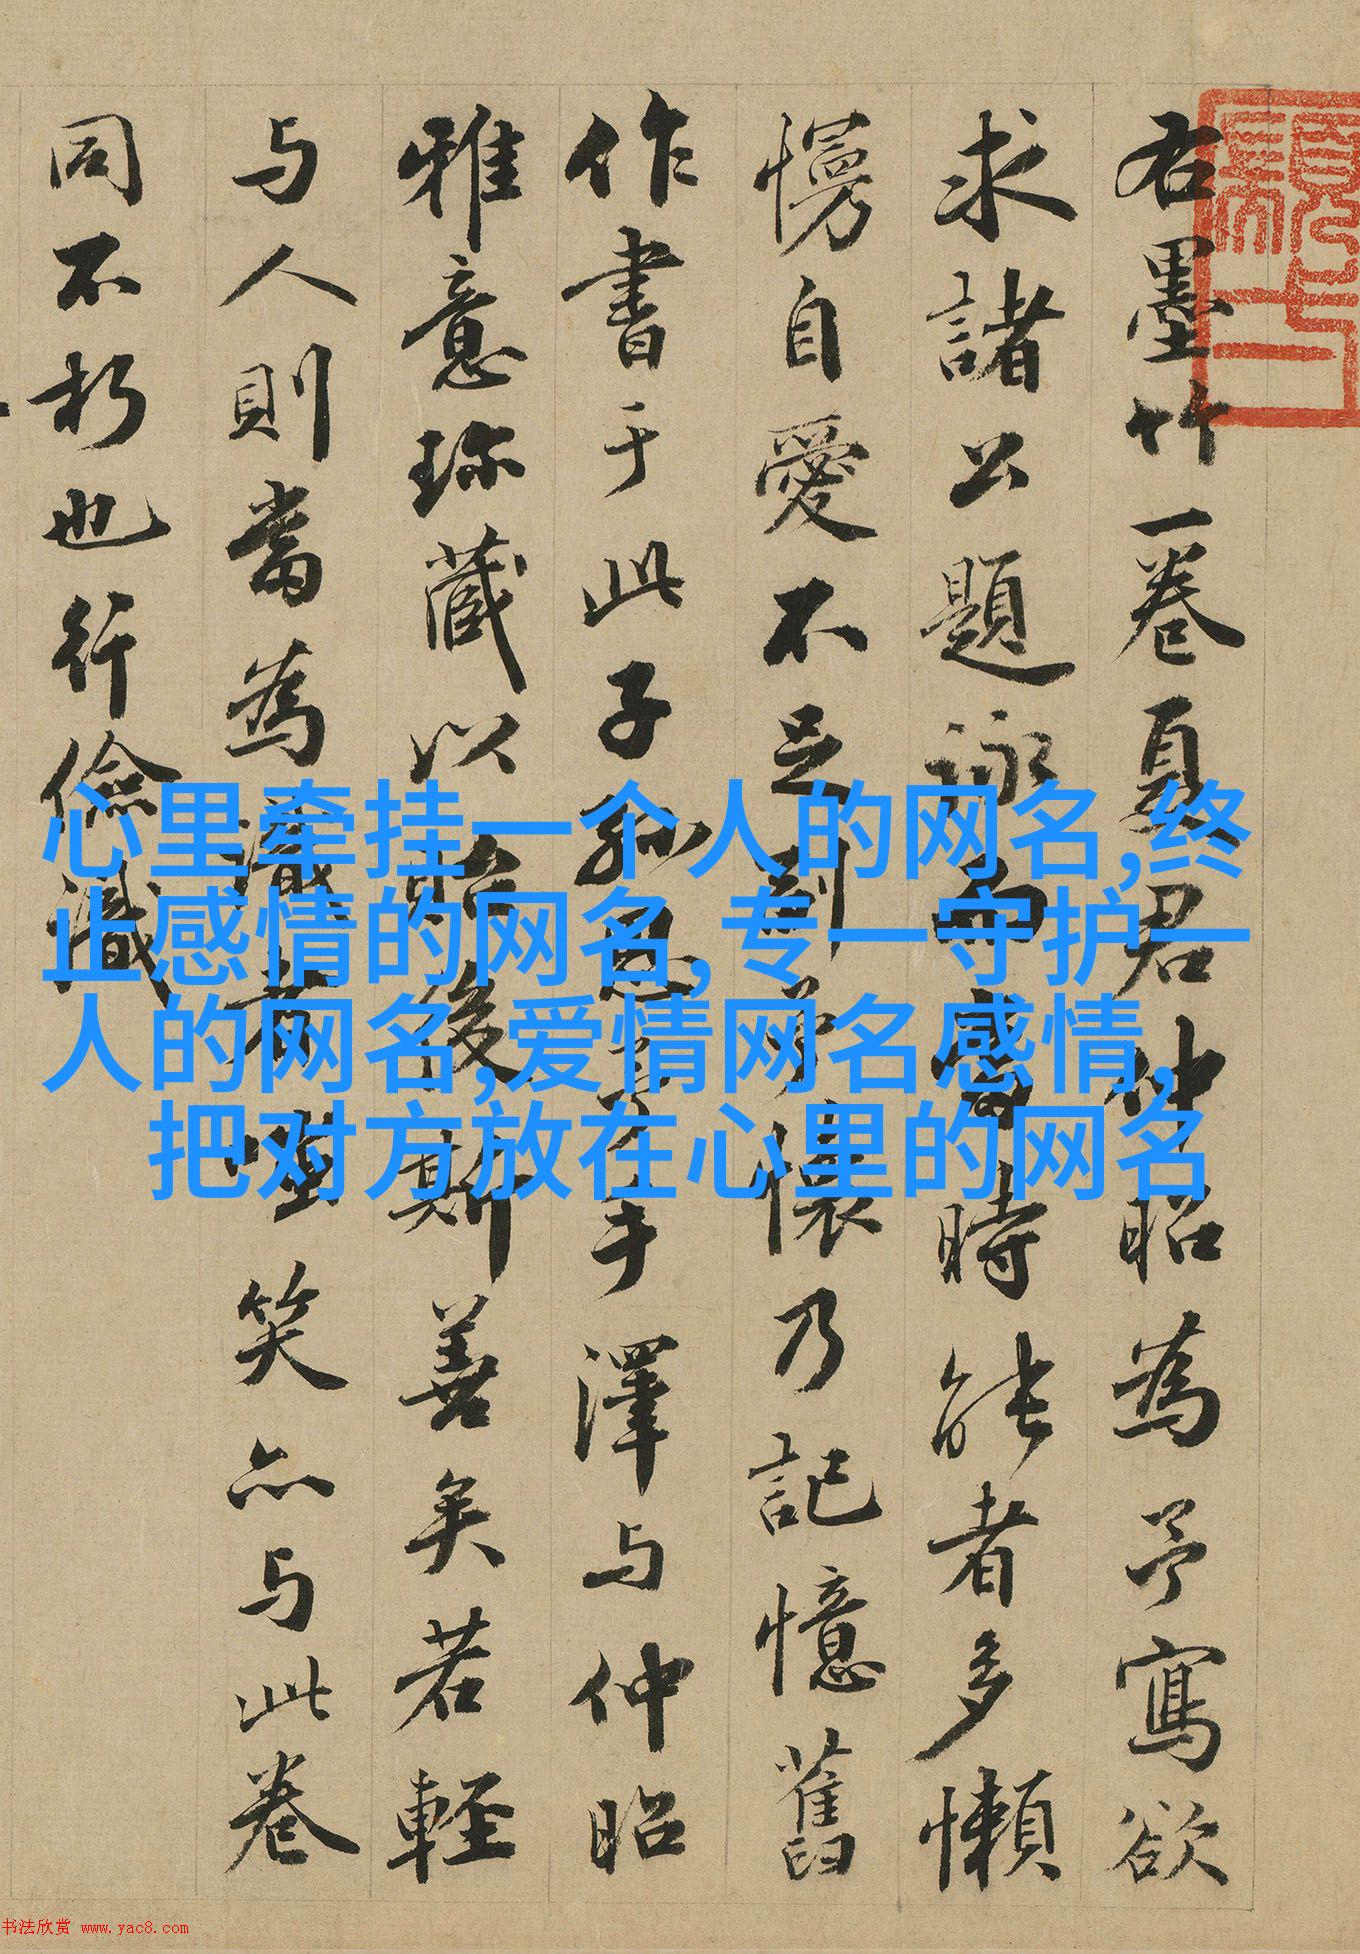 右墨竹一卷夏君仲昭為予寫欲
求諸公題詠而當時能者多懶
慢自愛不足副予懷乃記憶舊
作書于此子孫見予手澤与仲昭
雅意珎藏以貽後斯善矣若輕
与人則當為識者嗤笑亦与此卷
同不朽也行儉識
心里牵挂一个人的网名,终
止感情的网名,专一守护一
人的网名,爱情网名感情,
把对方放在心里的网名
书法欣赏 www.yac8.com